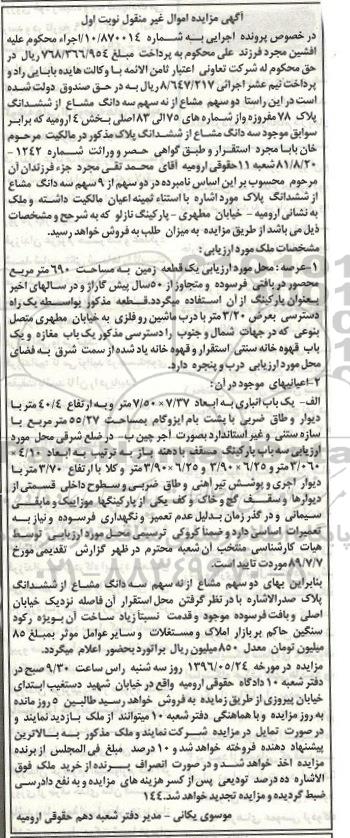 آگهی مزایده اموال غیر منقول نوبت اول
در خصوص پرونده اجرایی به شماره ۱۰/۸۷۰۰۱۴/اجراء محکوم علیه
افشین مجرد فرزند علی محکوم به پرداخت مبلغ ۷۶۸/۳۶۶/۹۵۴ ریال در
حق محکوم له شرکت تعاونی اعتبار ثامن الائمه با وکالت هایده بابایی راد و
پرداخت نیم عشر اجرائی ۸/۶۴۷/۲۱۷ ریال به در حق صندوق دولت شده
است در این راستا دو سهم مشاع از نه سهم سه دانگ مشاع از ششدانگ
پلاک ۷۸ مفروزه واز شماره های ۷۵ الی ۸۳ اصلی بخش ۴ ارومیه که برابر
سوابق موجود سه دانگ مشاع از ششدانگ پلاک مذکور در مالکیت مرحوم
خان بابا مجرد استقرار و طبق گواهی حصر و وراثت شماره ۱۲۴۲ -
۸۱/۸/۲۰ شعبه ۱۱ حقوقی ارومیه آقای محمد تقی مجرد جزء فرزندان آن
مرحوم محسوب بر این اساس نامبرده در دو سهم از ۹ سهم سه دانگ مشاع
از ششدانگ پلاک مورد اشاره با استثناء ثمینه اعیان مالکیت داشته و ملک
به نشانی ارومیه - خیابان مطهری - پارکینگ نازلو که به شرح و مشخصات
ذیل می باشد از طریق مزایده به میزان طلب به فروش خواهد رسید.
مشخصات ملک مورد ارزیابی:
۱-عرصه: محل مورد ارزیابی یک قطعه زمین به مساحت ۶۹۰ متر مربع
محصور در بافتی فرسوده و متجاوز از ۵۰ سال پیش گاراژ و در سالهای اخیر
بعنوان پارکینگ از آن استفاده میگردد.قطعه مذکور بواسطه یک راه
دسترسی بعرض ۳/۲۰ متر با درب ماشین رو فلزی به خیابان مطهری متصل
بنوعی که در جهات شمال و جنوب راه دسترسی مذکور یک باب مغازه و یک
باب قهوه خانه سنتی استقرار و قهوه خانه یاد شده از سمت شرق به فضای
محل مورد ارزیابی درب و پنجره دارد.
۲-اعیانیهای موجود در آن:
الف- یک باب انباری به ابعاد ۷/۳۷×۷/۵۰ متر و به ارتفاع ۴/۴۰ متر با
دیوار و طاق ضربی با پشت بام ایزوگام بمساحت ۵۵/۲۷ متر مربع با
سازه سنتی و غیر استاندارد بصورت آجر چین ب- در ضلع شرقی محل مورد
ارزیابی سه باب پارکینگ مسقف با دهنه باز به ترتیب به ابعاد ۴/۱۰×
۳/۰۶۰ متر و ۶/۲۵×۳/۹۰ و ۶/۲۵×۳/۹۰ متر و کلا با ارتفاع ۳/۷۰ متر با
دیوار آجری و پوشش تیر آهنی و طاق ضربی و سطوح داخلی قسمتی از
دیوارها و سقف گچ و خاک و کف یکی از پارکینگها موزاییک و مابقی
سیمانی و در گذر زمان بدلیل عدم تعمیر و نگهداری فرسوده و نیاز به
تعمیرات اساسی دارد و ضمنا کروکی ترسیمی محل مورد ارزیابی توسط
هیات کارشناسی منتخب آن شعبه محترم در ظهر گزارش تقدیمی مورخ
۸۹/۷/۷ موردت تایید است.
بنابراین بهای دو سهم مشاع از نه سهم سه دانگ مشاع از ششدانگ
پلاک صدرالاشاره با در نظر گرفتن محل استقرار آن فاصله نزدیک خیابان
اصلی و بافت فرسوده موجود و قدمت نسبتا زیاد ساخت آن بویژه رکود
سنگین حاکم بر بازار املاک و مستغلات و سایر عوامل موثر بمبلغ ۸۵
میلیون تومان معدل ۸۵۰ میلیون ریال برآورد بحضور اعلام میگردد.
مزایده در مورخه ۱۳۹۶/۰۵/۲۴ روز سه شنبه راس ساعت ۹/۳۰ صبح در
دفتر شعبه ۱۰ دادگاه حقوقی ارومیه واقع در خیابان شهید دستغیب ابتدای
خیابان پیروزی از طریق زمایده به فروش خواهد رسید طالبین ۵ روز مانده
به روز مزایده و با هماهنگی دفتر شعبه ۱۰ میتوانند از ملک بازدید نمایند و
در صورت تمایل در مزایده شرکت نمایند و ملک مذکور به بالاترین
پیشنهاد دهنده فروخته خواهد شد و ۱۰ درصد مبلغ فی المجلس از برنده
مزایده اخذ خواهد شد و در صورت انصراف برنده از خرید ملک فوق
الاشاره ده درصد تودیعی پس از کسر هزینه های مزایده و به نفع دادرسی
ضبط گردیده و مزایده تجدید خواهد شد.۱۴۴
موسوی یکانی - مدیر دفتر شعبه دهم حقوقی ارومیه